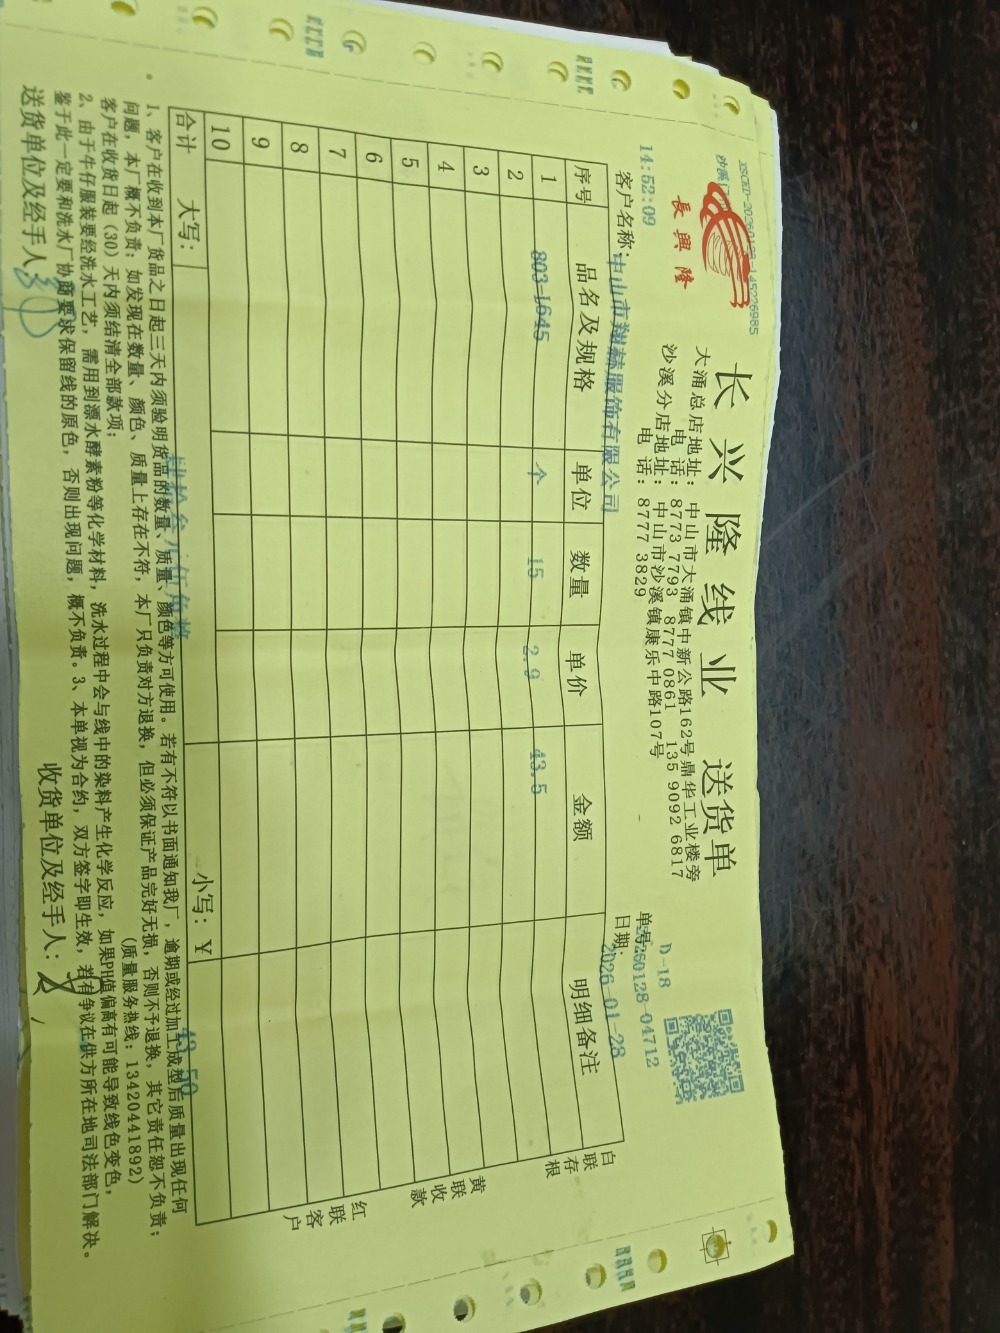 長興隆
长兴隆线业 送货单
大涌总店地址：中山市大涌镇中新公路162号鼎华工业楼旁
电 话：8773 7793 8777 0861 135 9092 6817
沙溪分店地址：中山市沙溪镇康乐中路107号
电 话：8777 3829
D-18
14:52:09
单号: 20260128-04712
客户名称：中山市翔赫服饰有限公司
日期: 2026-01-28
序号 品名及规格 单位 数量 单价 金额 明细备注
1 803-L645 个 15 2.9 43.5
2
3
4
5
6
7
8
9
10
合计 大写： 小写：Y 43.50
白联存根
黄联收款
红联客户
1、客户在收到本厂货品之日起三天内须验明货品的数量、质量、颜色等方可使用。若有不符以书面通知我厂，逾期或经过加工成型后质量出现任何
问题，本厂概不负责；如发现在数量、颜色、质量上存在不符，本厂只负责对方退换，但必须保证产品完好无损，否则不予退换，其它责任恕不负责；
客户在收货日起（30）天内须结清全部款项； （质量服务热线：13420441892）
2、由于牛仔服装要经洗水工艺，需用到漂水酵素粉等化学材料，洗水过程中会与线中的染料产生化学反应，如果PH值偏高有可能导致线色变色，
鉴于此一定要和洗水厂协商要求保留线的原色，否则出现问题，概不负责。3、本单视为合约，双方签字即生效，若有争议在供方所在地司法部门解决。
送货单位及经手人： 收货单位及经手人：